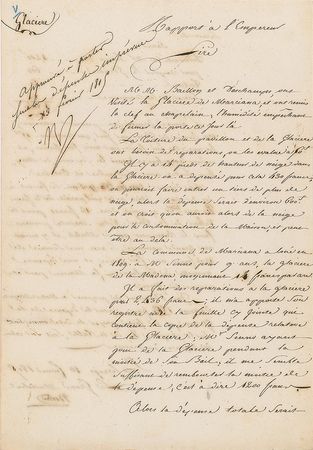 Glacière
Rapport à l'Empereur
Sire,
Approuvé à porter
dépense imprévue
23 février 1815
N
MM. Baillon et Deschamps, ont
visité la Glacière de Marciana, et ont remis
la clef au Chapelain, l'humidité empêchant
de fermer la porte ce jour là.
La toiture du pavillon et de la Glacière
ont besoin de réparations, on les évalue à
Il y a 14 pieds de hauteur de neige dans
la Glacière on a dépensé pour cela 430 francs,
on pourrait faire entrer un tiers de plus de
neige, alors la dépense serait d'environ 600f
et on croit qu'on aurait alors de la neige
pour la consommation de la Maison, et peut-
être au delà.
La commune de Marciana a loué en
1809 à Mr Senno pour 9 ans, la glacière
de la Madona moyennant francs par an
Il a fait des réparations à la glacière
pour 2,436 francs; il m'a apporté son
registre et la feuille cy jointe que
contient la copie de la dépense relative
à la Glacière; Mr Senno ayant
joui de la Glacière pendant la
moitié de son Bail, il me semble
suffisant de rembourser la moitié de
la dépense, c'est à dire 1200 francs
Alors la dépense totale serait